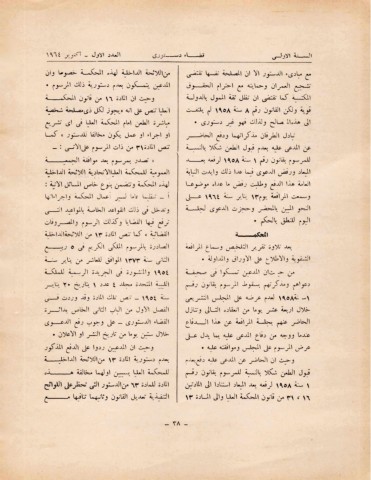 السنة الاولى
قضاء دستورى
العدد الاول - اكتوبر ١٩٦٤
مع مبادىء الدستور الا ان المصلحة نفسها تقتضى
تشجيع العمران وحمايته مع احترام حقوق
الكتبة كما تقتضى ان نظل ثقة الممول بالدولة
قوية ولكن القانون رقم ٨ سنة ١٩٥٨ لم يهدف
الى مصلحة صالح ولذلك فهو غير دستورى .
تبادل الطرفان مذكراتهما ودفع الحاضر
عن المدعى عليه بعدم قبول الطعن شكلا بالنسبة
للمرسوم بقانون رقم ١ سنة ١٩٥٨ لرفعه بعد
الميعاد ورفض الدعوى فيما عدا ذلك وايدت النيابة
العامة هذا الدفع وطلبت رفض ما عداه موضوعا
وسمعت المرافعة يوم ١٣ يناير سنة ١٩٦٤ على
النحو المبين بالمحضر وحجزت الدعوى لجلسة
اليوم للنطق بالحكم .
المحكمة
بعد تلاوة تقرير التلخيص وسماع المرافعة
الشفوية والاطلاع على الاوراق والمداولة .
من حيث ان المدعين تمسكوا فى صحيفة
دعواهم ومذكرتهم بسقوط المرسوم بقانون رقم
١ - ١٩٥٨ لعدم عرضه على المجلس التشريعى
خلال اربعة عشر يوما من انعقاده التالى وتنازل
الحاضر عنهم بجلسة المرافعة عن هذا الدفاع
عندما ووجه من دفاع المدعى عليه بما يدل على
عرض المرسوم على المجلس وموافقته عليه .
وحيث ان الحاضر عن المدعى عليه دفع بعدم
قبول الطعن شكلا بالنسبة للمرسوم بقانون رقم
١ سنة ١٩٥٨ لرفعه بعد الميعاد استنادا الى المادتين
١٦ ، ٣١ من قانون المحكمة العليا والى المادة ١٣
من اللائحة الداخلية لهذه المحكمة خصوصا وان
المدعين يتمسكون بعدم دستورية ذلك المرسوم .
وحيث ان المادة ١٦ من قانون المحكمة
العليا تنص على انه « يجوز لكل ذى مصلحة شخصية
مباشرة الطعن امام المحكمة العليا فى اى تشريع
او اجراء او عمل يكون مخالفا للدستور » كما
تنص المادة ٣١ من ذات المرسوم على الآتى :-
« تصدر بمرسوم بعد موافقة الجمعية
العمومية للمحكمة العليا الاتحادية اللائحة الداخلية
لهذه المحكمة وتتضمن بنوع خاص المسائل الآتية :
أ - تنظيما عاما لسير اعمال المحكمة واجراءاتها
وتدخل فى ذلك القواعد الخاصة بالمواعيد التى
يجب ان ترفع فيها القضايا وبالرسوم والمصاريف
القضائية » كما تنص المادة ١٣ من اللائحة الداخلية
الصادرة بالمرسوم الملكى الكريم فى ٥ ربيع
الثانى سنة ١٣٧٣ الموافق العاشر من يناير سنة
١٩٥٤ والمنشورة فى الجريدة الرسمية للمملكة
الليبية المتحدة مجلد ٤ عدد ١ بتاريخ ٢٠ يناير
سنة ١٩٥٤ - تنص المادة وقد وردت فى
الفصل الاول من الباب الثانى الخاص بدائرة
القضاء الدستورى - على وجوب رفع الدعوى
خلال ستين يوما من تاريخ النشر او الاعلان .
وحيث ان المدعين ردوا على الدفع المذكور
بعدم دستورية المادة ١٣ من اللائحة الداخلية
للمحكمة العليا بسببين اولهما مخالفة هذه
المادة للمادة ٦٣ من الدستور التى تحظر على اللوائح
التنفيذية تعديل القانون وثانيهما تنافيها مع
- ٢٨ -